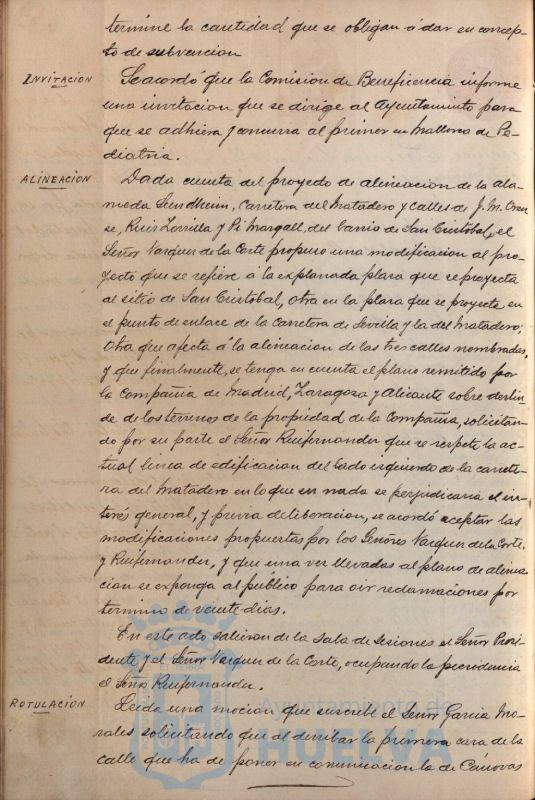 termine la cantidad que se obligan á dar en concep-
to de subvencion
INVITACION
Se acordó que la Comision de Beneficencia informe
una invitacion que se dirige al Ayuntamiento para
que se adhiera y concurra al primer en Mallorca de Pe-
diatria.
ALINEACION
Dada cuenta del proyecto de alineacion de la ala-
meda Sundheim, Carretera del Matadero y calles de J. M. Oren
se, Ruiz Zorrilla y Pi Margall, del barrio de San Cristóbal, el
Señor Vazquez de la Corte propuso una modificacion al pro-
yecto que se refiere á la explanada plaza que se proyecta
al sitio de San Cristóbal, otra en la plaza que se proyecta en
el punto de enlace de la Carretera de Sevilla y la del Matadero;
otra que afecta á la alineacion de las tres calles nombradas,
y que finalmente, se tenga en cuenta el plano remitido por
la Compañia de Madrid, Zaragoza y Alicante sobre deslin-
de de los terrenos de la propiedad de la Compañia, solicitan-
do por su parte el Señor Ruifernandez que se respete la ac-
tual linea de edificacion del lado izquierdo de la carrete-
ra del Matadero en lo que en nada se perjudicaria el in-
terés general, y previa deliberacion, se acordó aceptar las
modificaciones propuestas por los Señores Vazquez de la Corte,
y Ruifernandez, y que una vez llevadas al plano de alinea
cion se exponga al público para oir reclamaciones por
termino de veinte dias.
En este acto salieron de la Sala de Sesiones el Señor Presi-
dente y el Señor Vazquez de la Corte, ocupando la presidencia
el Señor Ruifernandez.
ROTULACION
Leida una mocion que suscribe el Señor Garcia Mo-
rales solicitando que al derribar la primera casa de la
calle que ha de poner en comunicacion la de Cánovas
Ayuntamiento de
HUELVA